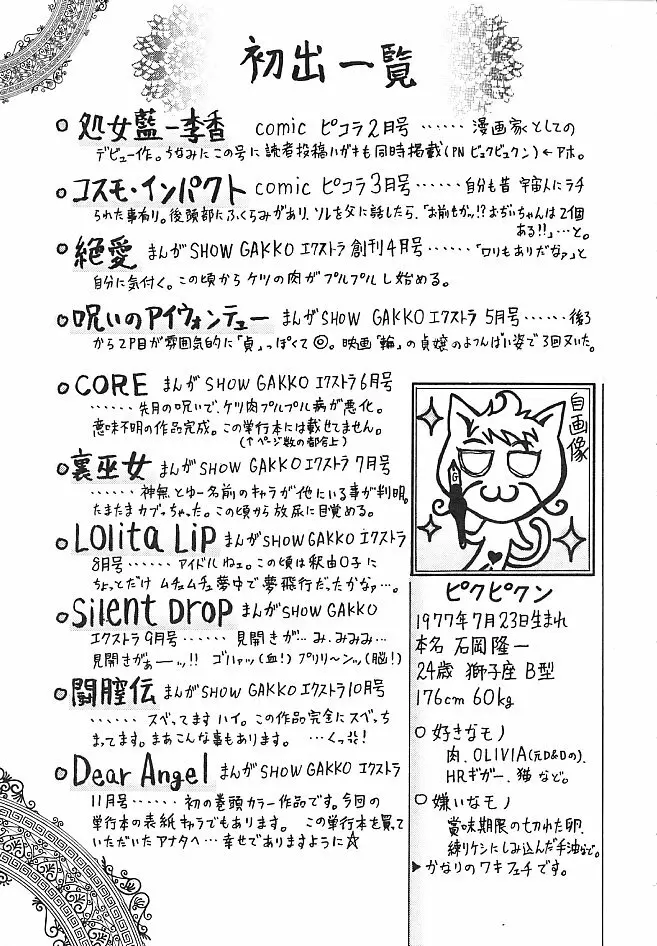 初出一覧
○処女藍一李香 comic ピコラ2月号 ‥‥‥ 漫画家としての
デビュー作。ちなみにこの号に読者投稿ハガキも同時掲載(PN ピュクピュクン)←アホ。
○コスモ・インパクト comic ピコラ3月号 ‥‥‥自分も昔 宇宙人にラチ
られた事有り。後頭部にふくらみがあり、ソレを父に話したら、「お前もかッ!?おぢいちゃんは2個
ある!!」…と。
○絶愛 まんがSHOW GAKKO エクストラ 創刊4月号‥‥‥「ロリもありだなァ」と
自分に気付く。この頃からケツの肉がプルプルし始める。
○呪いのアイヴォンテュー まんがSHOW GAKKO エクストラ 5月号‥‥‥後ろ
から2P目が雰囲気的に「貞」っぽくて◎。映画「輪」の貞嬢のよつんばい姿で3回ヌいた。
○CORE まんがSHOW GAKKO エクストラ6月号
‥‥‥先月の呪いで、ケツ肉プルプル病が悪化。
意味不明の作品完成。この単行本には載せてません。
(↑ページ数の都合上)
○裏巫女 まんがSHOW GAKKO エクストラ 7月号
‥‥‥神無とゆー名前のキャラが他にいる事が判明。
たまたまカブっちゃった。この頃から放尿に目覚める。
○Lolita Lip まんがSHOW GAKKO エクストラ
8月号‥‥‥アイドルねェ。この頃は釈由○子に
ちょっとだけ ムチュムチュ夢中で夢飛行だったかなァ…。
○Silent Drop まんがSHOW GAKKO
エクストラ9月号‥‥‥ 見開きが…み、みみみ…
見開きがぁーーッ!! ゴハァッ(血!)プリリ〜ンッ(脳!)
○闘膣伝 まんがSHOW GAKKO エクストラ10月号
‥‥‥スベってます ハイ。この作品完全にスベっち
まってます。まあこんな事もあります。 …くっ!
○Dear Angel まんがSHOW GAKKO エクストラ
11月号‥‥‥初の巻頭カラー作品です。今回の
単行本の表紙キャラでもあります。 この単行本を買って
いただいたアナタへ…幸せでありますように☆
自画像
G
ピクピクン
1977年7月23日生まれ
本名 石岡隆一
24歳 獅子座 B型
176cm 60kg
○好きなモノ
肉、OLIVIA(元D&Dの)、
HRギガー、猫 など。
○嫌いなモノ
賞味期限の切れた卵、
練りケシにしみ込んだ手油など。
▶かなりのワキフェチです。